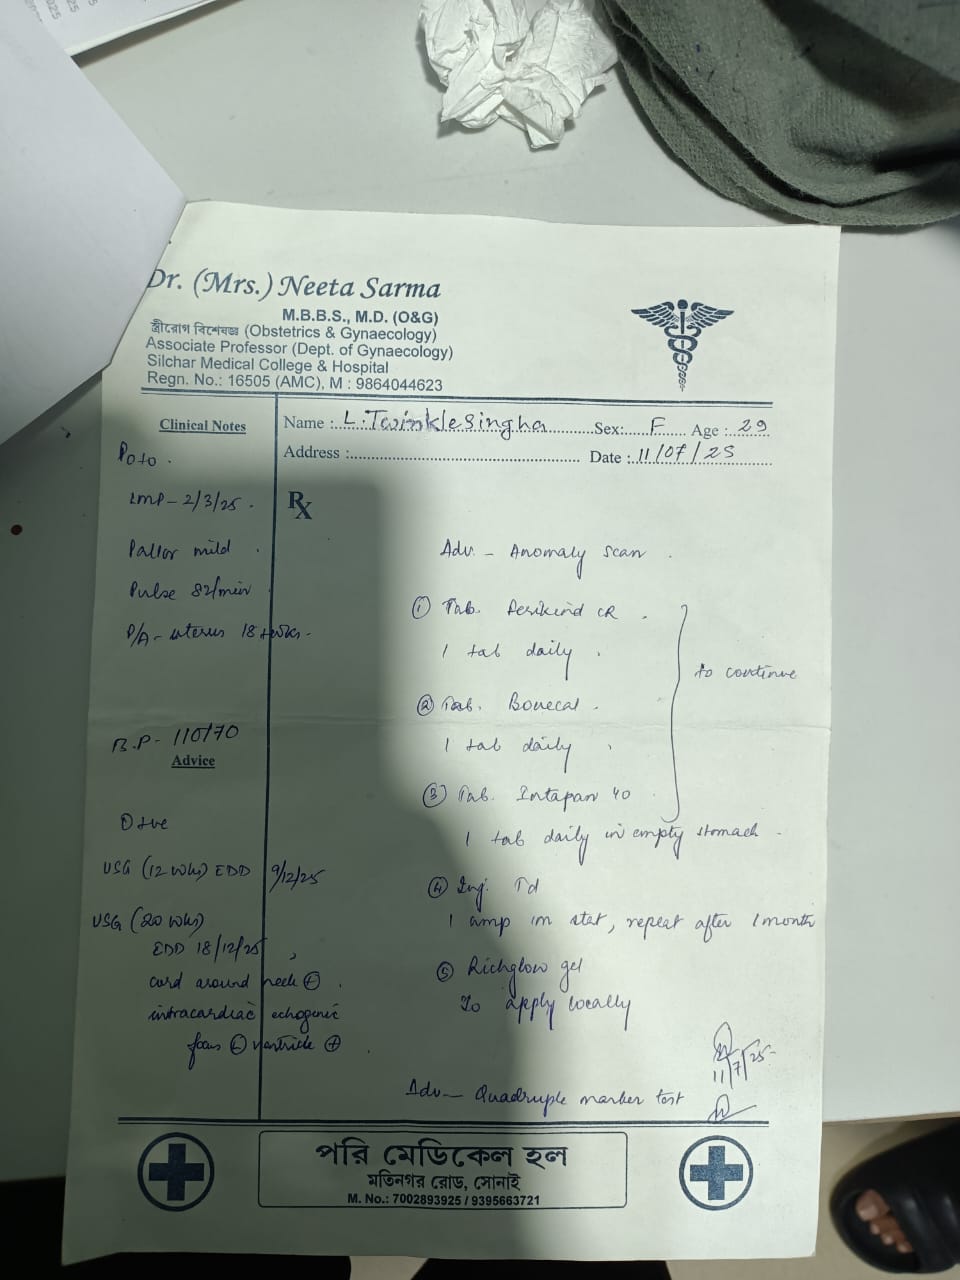 Dr. (Mrs.) Neeta Sarma
M.B.B.S., M.D. (O&G)
স্ত্রীরোগ বিশেষজ্ঞ (Obstetrics & Gynaecology)
Associate Professor (Dept. of Gynaecology)
Silchar Medical College & Hospital
Regn. No.: 16505 (AMC), M : 9864044623
Name : L. Twinkle Singha Sex: F Age : 29
Address : Date : 11/07/25
Clinical Notes
P0+0.
LMP - 2/3/25.
Pallor mild
Pulse 82/min
P/A - uterus 18 wks.
B.P - 110/70
Advice
O+ve
USG (12 wks) EDD 9/12/25
USG (20 wks)
EDD 18/12/25,
cord around neck +
intracardiac echogenic
focus L ventricle +
Rx
Adv - Anomaly scan
① Tab. CR
1 tab daily
② Tab. Bonecal
1 tab daily
③ Tab. Intapan 40
to continue
1 tab daily in empty stomach
④ Inj. Td
1 amp im stat, repeat after 1 month
⑤ Richglow gel
To apply locally
11/7/25
Adv - Quadruple marker test
পরি মেডিকেল হল
মতিনগর রোড, সোনাই
M. No.: 7002893925 / 9395663721